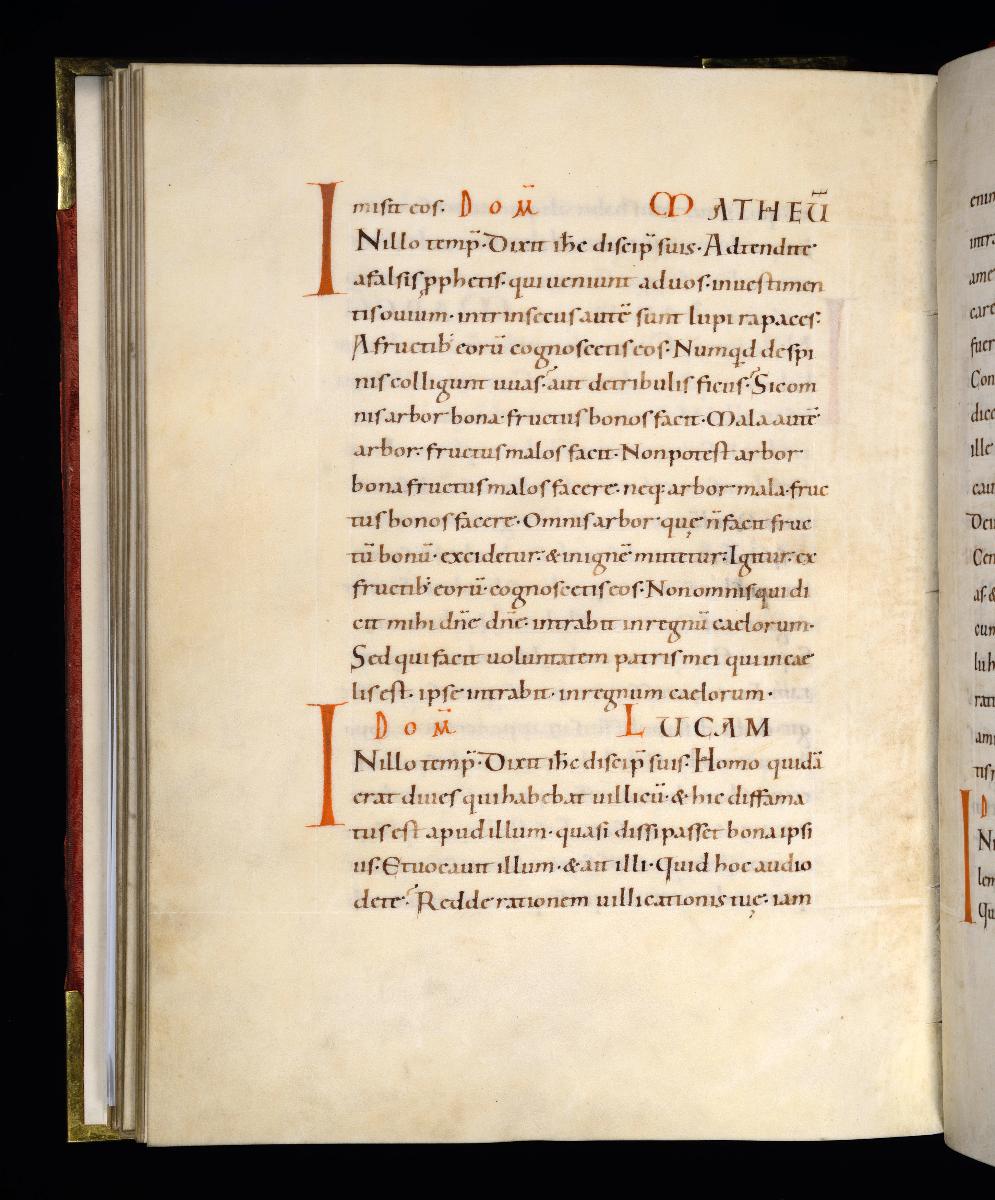 misit eos. DOM̅ MATHEU̅
INillo temp̅. Dixit ih̅c discip̅ suis. Adtendite
afalsis pphetis. qui veniunt aduos. inuestimen
tisouium. intrinsecus aute̅ sunt lupi rapaces.
Afructib; eoru̅ cognoscetis eos. Numqd despi
nis colligunt uuas. aut detribulis ficus. Sic om
nis arbor bona. fructus bonos facit. Mala aute̅
arbor. fructus malos facit. Non potest arbor
bona fructus malos facere. neq; arbor mala. fruc
tus bonos facere. Omnis arbor quę n̅ facit fruc
tu̅ bonu̅. excidetur. & inigne̅ mittetur. Igitur. ex
fructib; eoru̅ cognoscetis eos. Non omnis qui di
cit mihi dn̅e dn̅e. intrabit inregnu̅ caelorum.
Sed qui facit uoluntatem patris mei qui incae
lis est. ipse intrabit. inregnum caelorum.
DOM̅ LUCAM
INillo temp̅. Dixit ih̅c discip̅ suis. Homo quida̅
erat diues qui habebat uillicu̅. & hic diffama
tus est apud illum. quasi dissipasset bona ipsi
us. Et uocauit illum. & ait illi. Quid hoc audio
dete. Redde rationem uillicationis tuę. iam